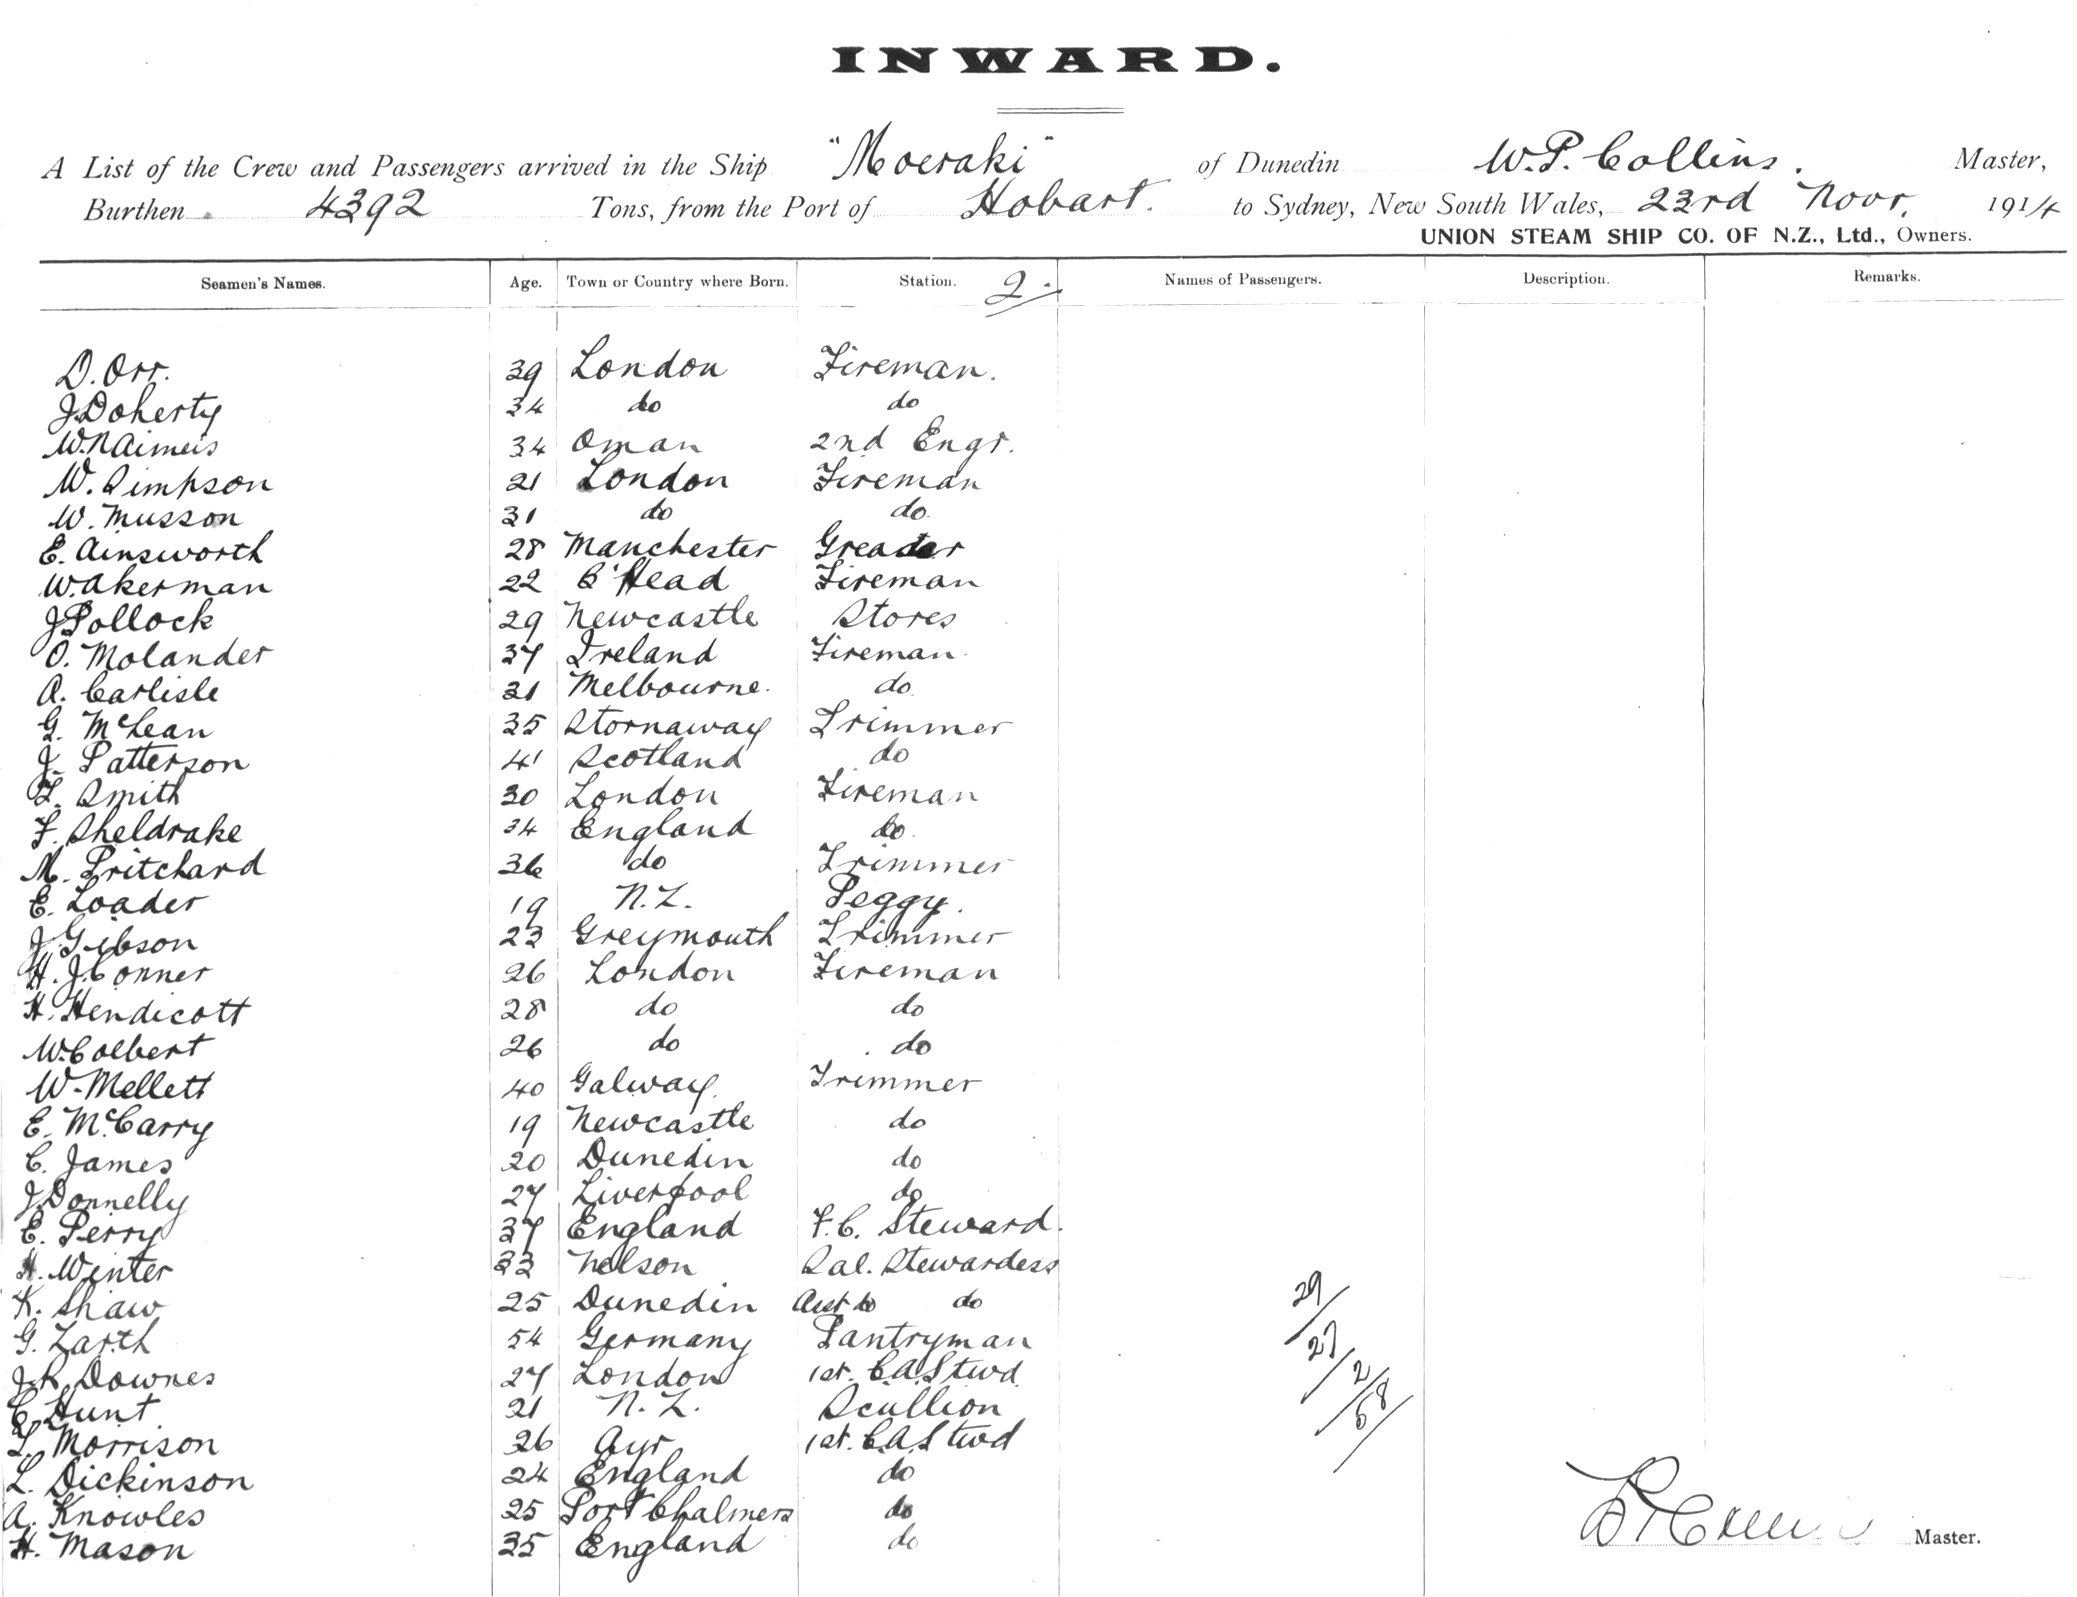 INWARD.
A List of the Crew and Passengers arrived in the Ship "Moeraki" of Dunedin W.P. Collins. Master,
Burthen 4392 Tons, from the Port of Hobart. to Sydney, New South Wales, 23rd Novr. 1914
UNION STEAM SHIP CO. OF N.Z., Ltd., Owners.
Seamen's Names. Age. Town or Country where Born. Station. 2. Names of Passengers. Description. Remarks.
D. Orr. 39 London Fireman.
J Doherty 34 do do
34 Oman 2nd Engr.
W. Simpson 21 London Fireman
W. Musson 31 do do
E. Ainsworth 28 Manchester
W. Akerman 22 B'Head Fireman
J Pollock 29 Newcastle Stores
O. Molander 37 Ireland Fireman
A. Carlisle 21 Melbourne. do
G. McLean 35 Stornaway Trimmer
J. Patterson 41 Scotland do
Smith 30 London Fireman
F. Sheldrake 34 England do.
M. Pritchard 36 do Trimmer
E. Loader 19 N.Z. Peggy.
J Gibson 23 Greymouth Trimmer
H. J. Conner 26 London Fireman
H. Hendicott 28 do do
W. Colbert 26 do do
W. Mellett 40 Galway. Trimmer
E. McCarry 19 Newcastle do
C. James 20 Dunedin do
J Donnelly 27 Liverpool do
E. Perry 37 England F.C. Steward.
H. Winter 33 Nelson Sal. Stewardess
K. Shaw 25 Dunedin Asst to do
G. Zarth 54 Germany Pantryman
J R Downes 27 London 1st. C.A. Stwd.
C Hunt 21 N.Z. Scullion
L. Morrison 26 Ayr 1st. C.A. Stwd
L. Dickinson 24 England do
A. Knowles 25 Port Chalmers do
H. Mason 35 England do
29/
27/
2/
58/
Master.